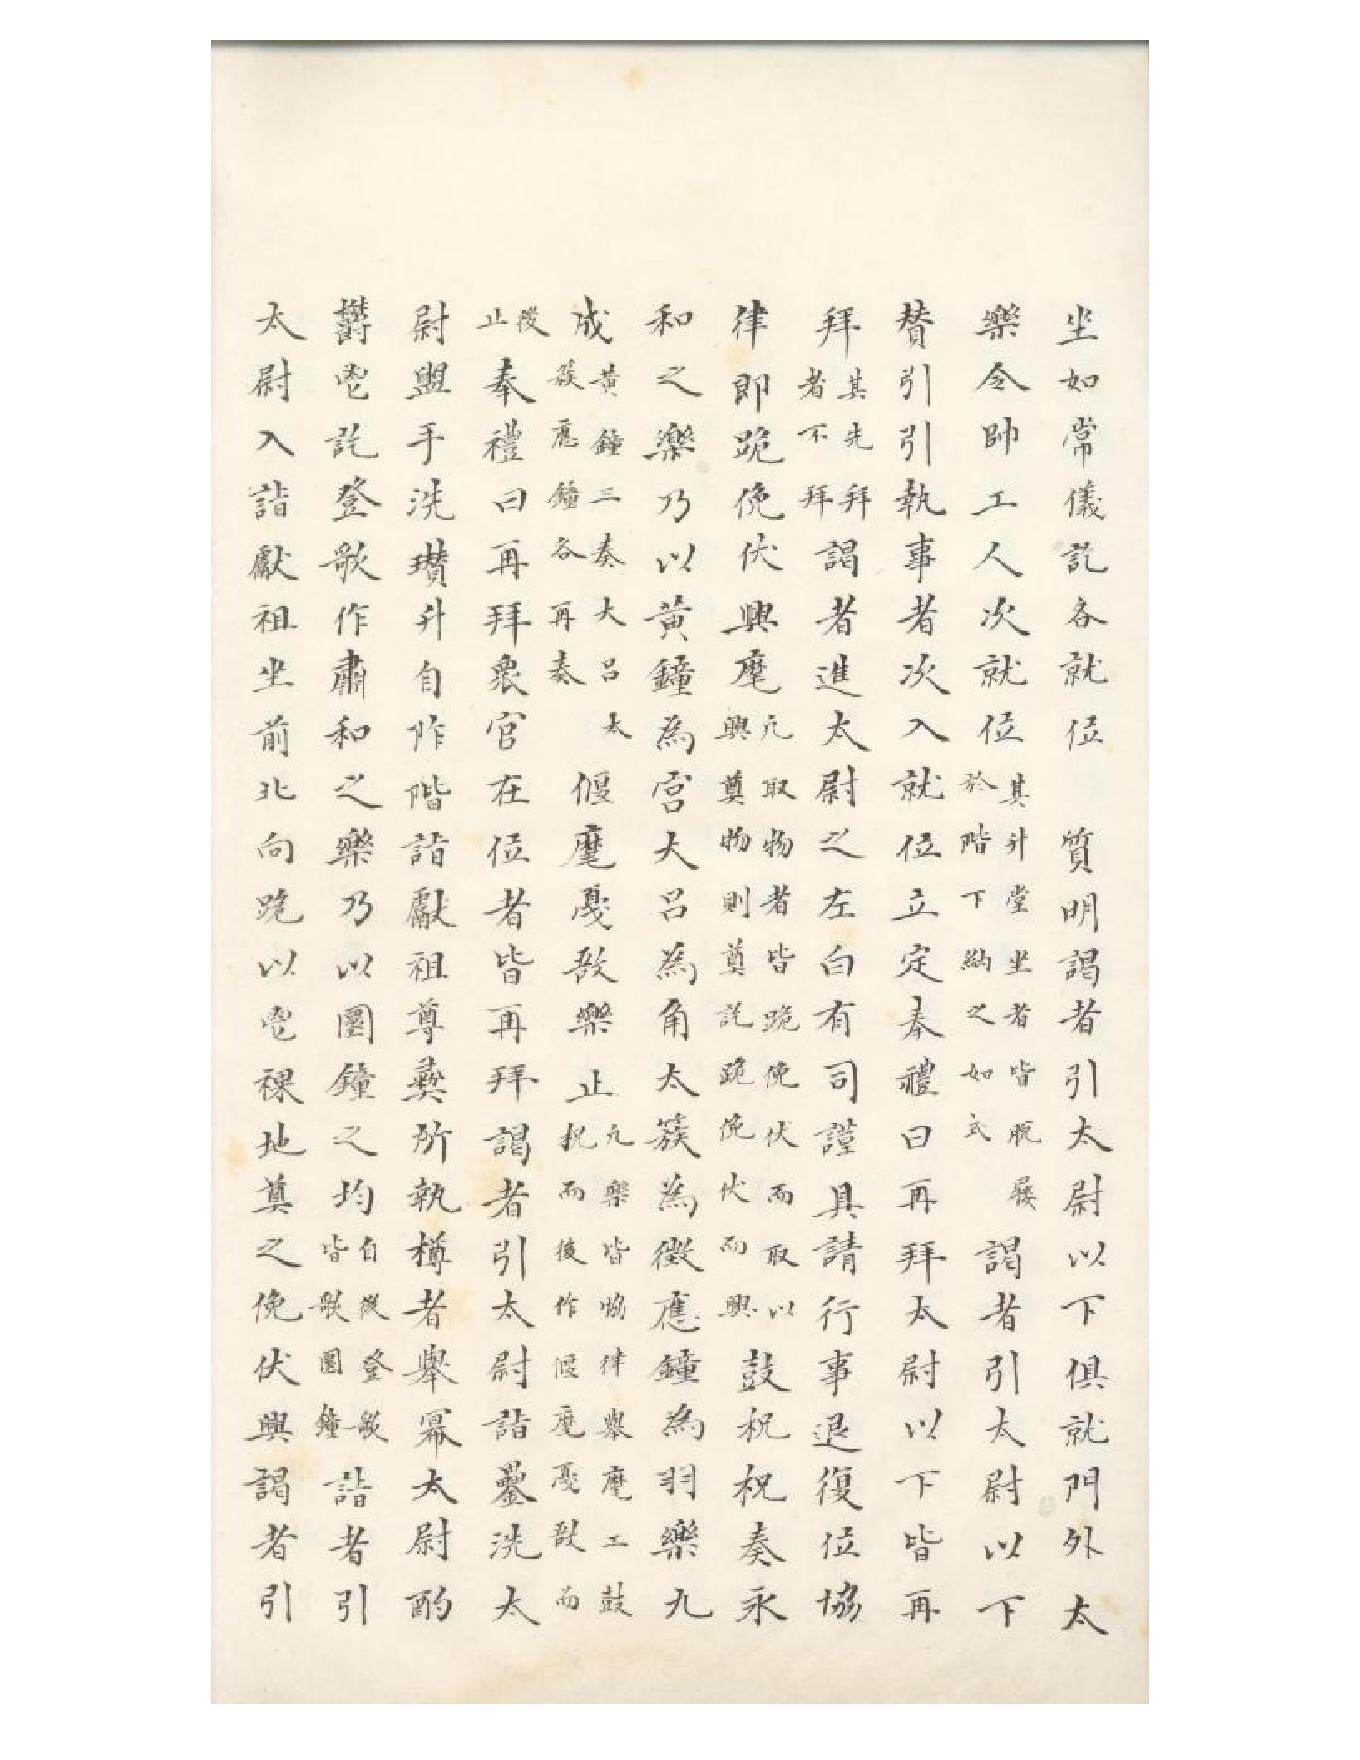 坐如常儀訖各就位　質明謁者引太尉以下俱就門外太
樂令帥工人次就位其升堂坐者皆脫屨於階下納之如式謁者引太尉以下
贊引引執事者次入就位立定奉禮曰再拜太尉以下皆再
拜其先拜者不拜謁者進太尉之左白有司謹具請行事退復位協
律即跪俛伏興麾凡取物者皆跪俛伏而取以興奠物則奠訖跪俛伏而興鼓柷柷奏永
和之樂乃以黃鐘為宮大呂為角太簇為徵應鐘為羽樂九
成黃鐘三奏大呂太簇應鐘各再奏偃麾戞敔樂止凡樂皆協律舉麾工鼓柷而後作偃麾戞敔而
後止奉禮曰再拜衆官在位者皆再拜謁者引太尉詣罍洗太
尉盥手洗瓚升自阼階詣獻祖尊彝所執樽者舉冪太尉酌
鬱鬯訖登歌作肅和之樂乃以圜鐘之均自後登歌皆歌圜鐘詣者引
太尉入詣獻祖坐前北向跪以鬯祼地奠之俛伏興謁者引